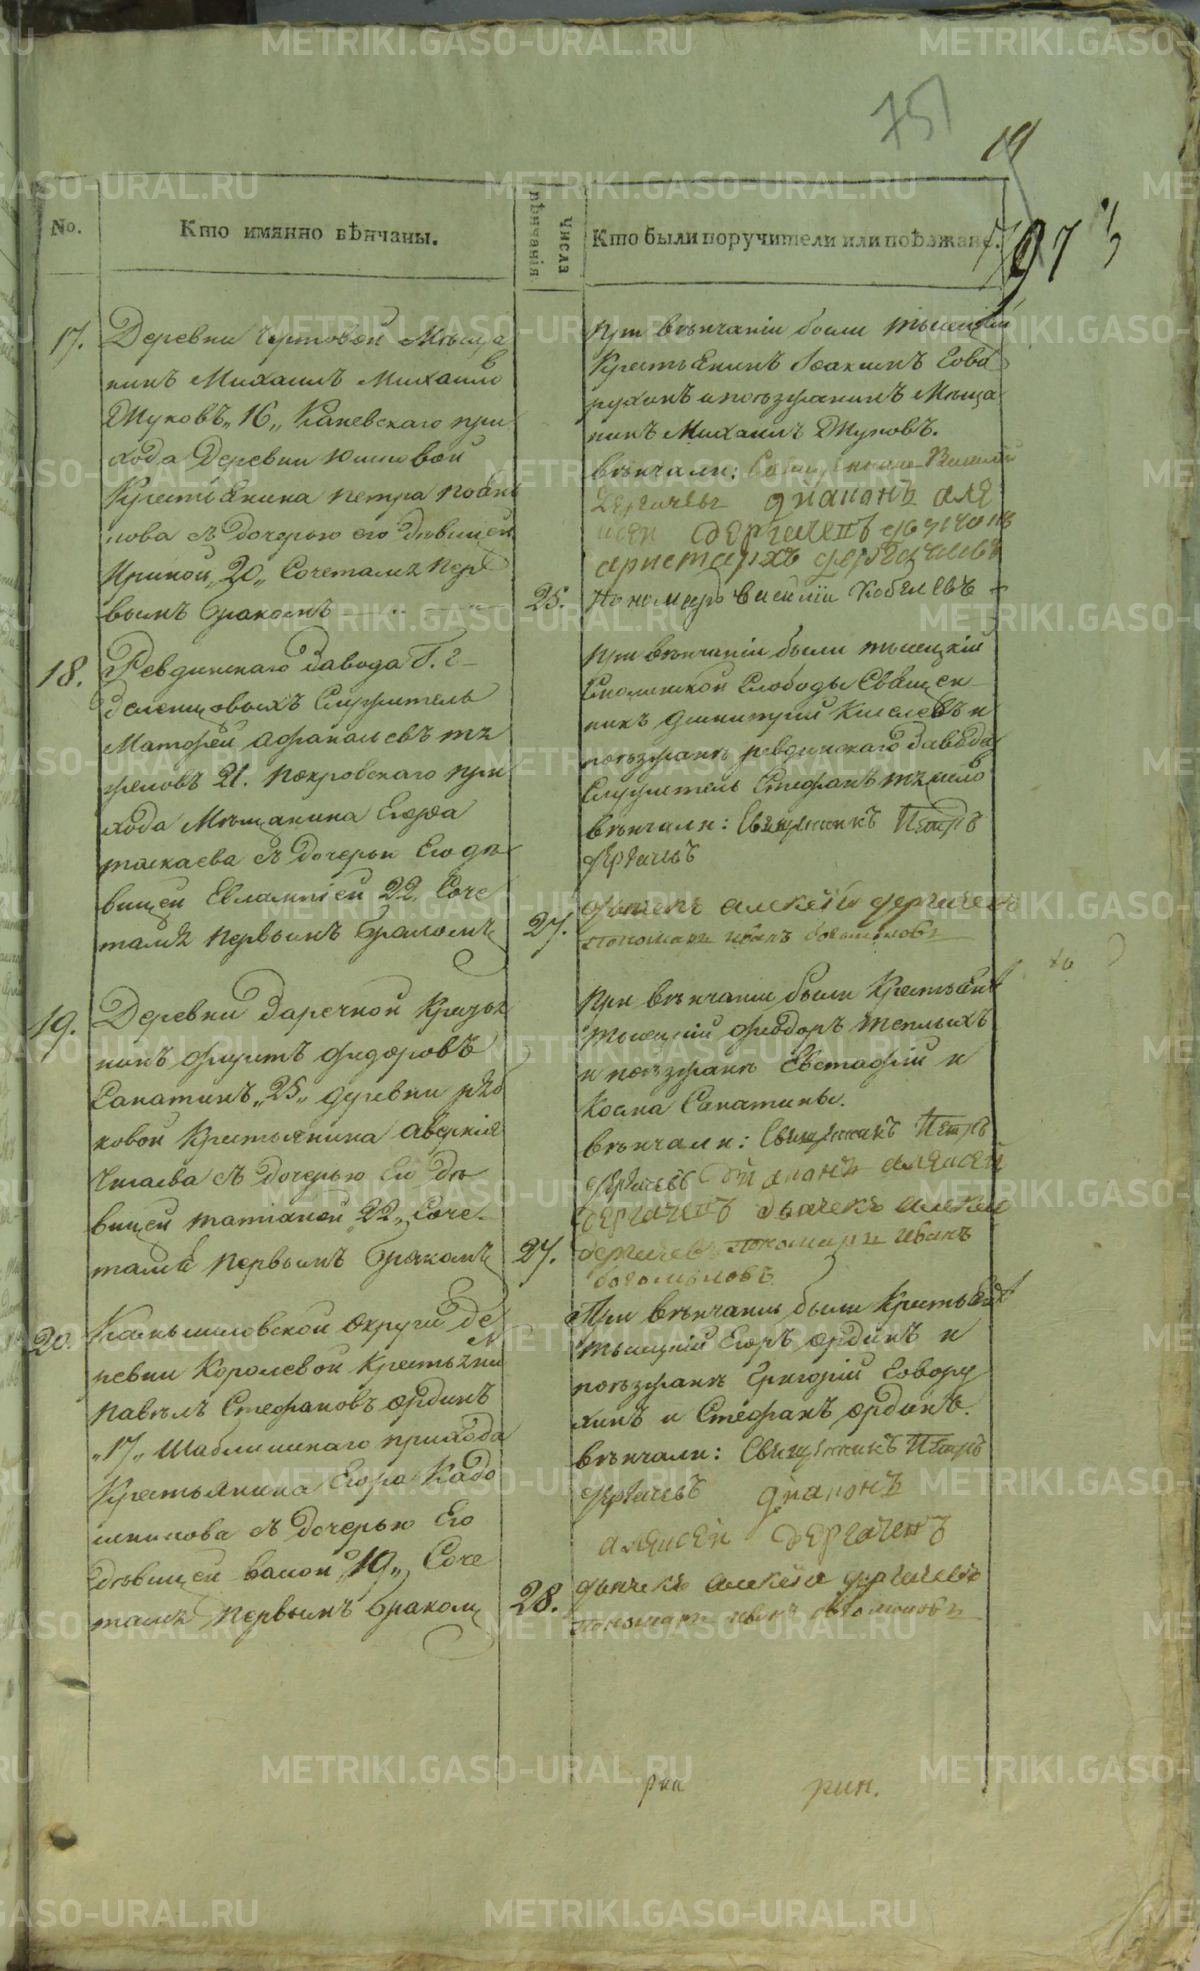 75
19
973
No.
Кто имянно вѣнчаны.
Числа вѣнчанія.
Кто были поручители или поѣзжане.
17. Деревни Чертовой Мѣща
нинъ Михаилъ Михайловъ
Жуковъ „16„ Каневскаго при
хода Деревни Юшковой
Крестьянина Петра
нова съ дочерью его дѣвицей
Ириной „20„ Сочетались пер
вымъ бракомъ
25.
При вѣнчаніи были тысецкій
Крестьянинъ Іоакимъ Гова
рухинъ и поѣзжанинъ Мѣща
нинъ Михаилъ Жуковъ.
вѣнчали: Василій
Дергачевъ диаконъ але
ксей дергачевъ
аристархъ дергачевъ
Пономарь василій Кобелевъ
18. Ревдинскаго Завода Г. г
Зеленцовыхъ Служитель
Матфей Афанасьевъ
21. Покровскаго при
хода Мѣщанина Егора
Таскаева съ дочерью Его дѣ
вицей Евлампіей 22. Соче
тались первымъ бракомъ
27.
При вѣнчаніи были тысецкій
Смолинской Слободы Священ
никъ Димитрій Киселевъ и
поѣзжанъ ревдинскаго Завода
Служитель Стефанъ
вѣнчали: Священникъ Петръ
Дергачевъ
дьячекъ алексѣй дергачевъ
пономарь иванъ богомоловъ
19. Деревни Заречной Кресть
нинъ Фидоровъ
Сапатинъ „25„ деревни рѣб
ковой Крестьянина Аверкія
Чигаева съ дочерью Его дѣ
вицей татіаной „22„ Соче
тались первымъ бракомъ
27.
При вѣнчаніи были Крестьяне
тысецкій Феодоръ Теплыхъ
и поѣзжанъ Евстафій и
Косма Сапатины.
вѣнчали: Священникъ Петръ
Дергачевъ диаконъ алексей
дергачевъ дьячекъ алексѣй
дергачевъ пономарь иванъ
богомоловъ
20. Камышловской Округи де
ревни Королевой Крестьянин
Павелъ Стефановъ Ординъ
„17„ Шаблишскаго прихода
Крестьянина Егора Кадо
шникова съ дочерью Его
дѣвицей „19„ Соче
тались первымъ бракомъ
28.
При вѣнчаніи были Крестьяне
тысецкій Егоръ Ординъ и
поѣзжанъ Григорій Говору
хинъ и Стефанъ Ординъ.
вѣнчали: Священникъ Петръ
Дергачевъ диаконъ
алексей дергачевъ
дьячекъ алексѣй дергачевъ
пономарь иванъ богомоловъ
METRIKI.GASO-URAL.RU